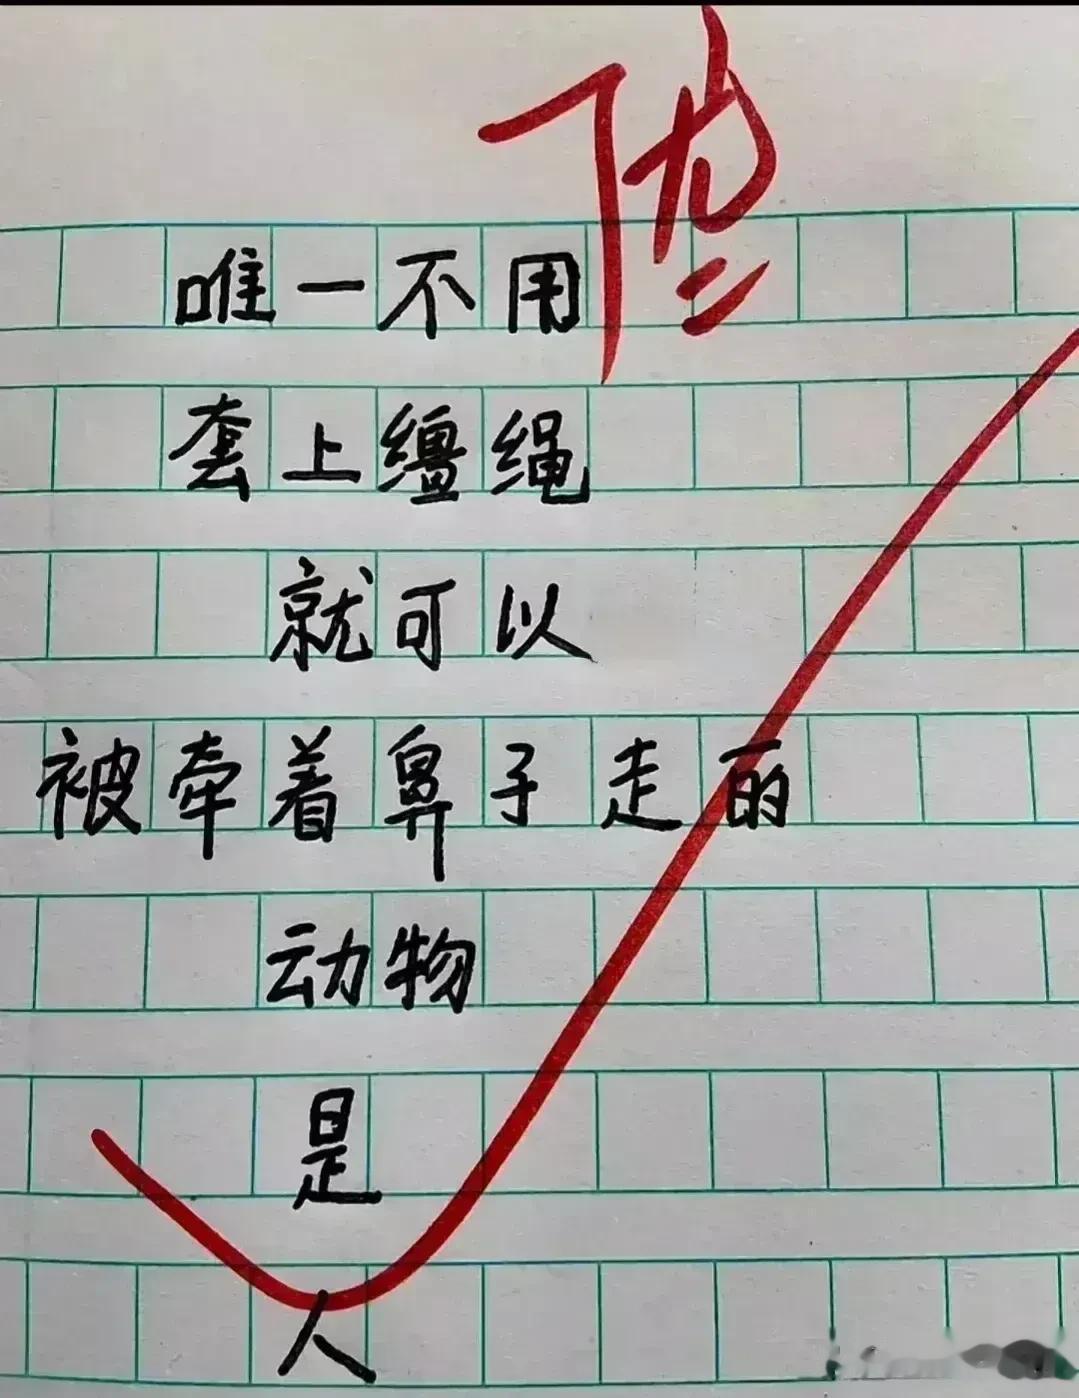 优
唯一不用
套上缰绳
就可以
被牵着鼻子走的
动物
是
人